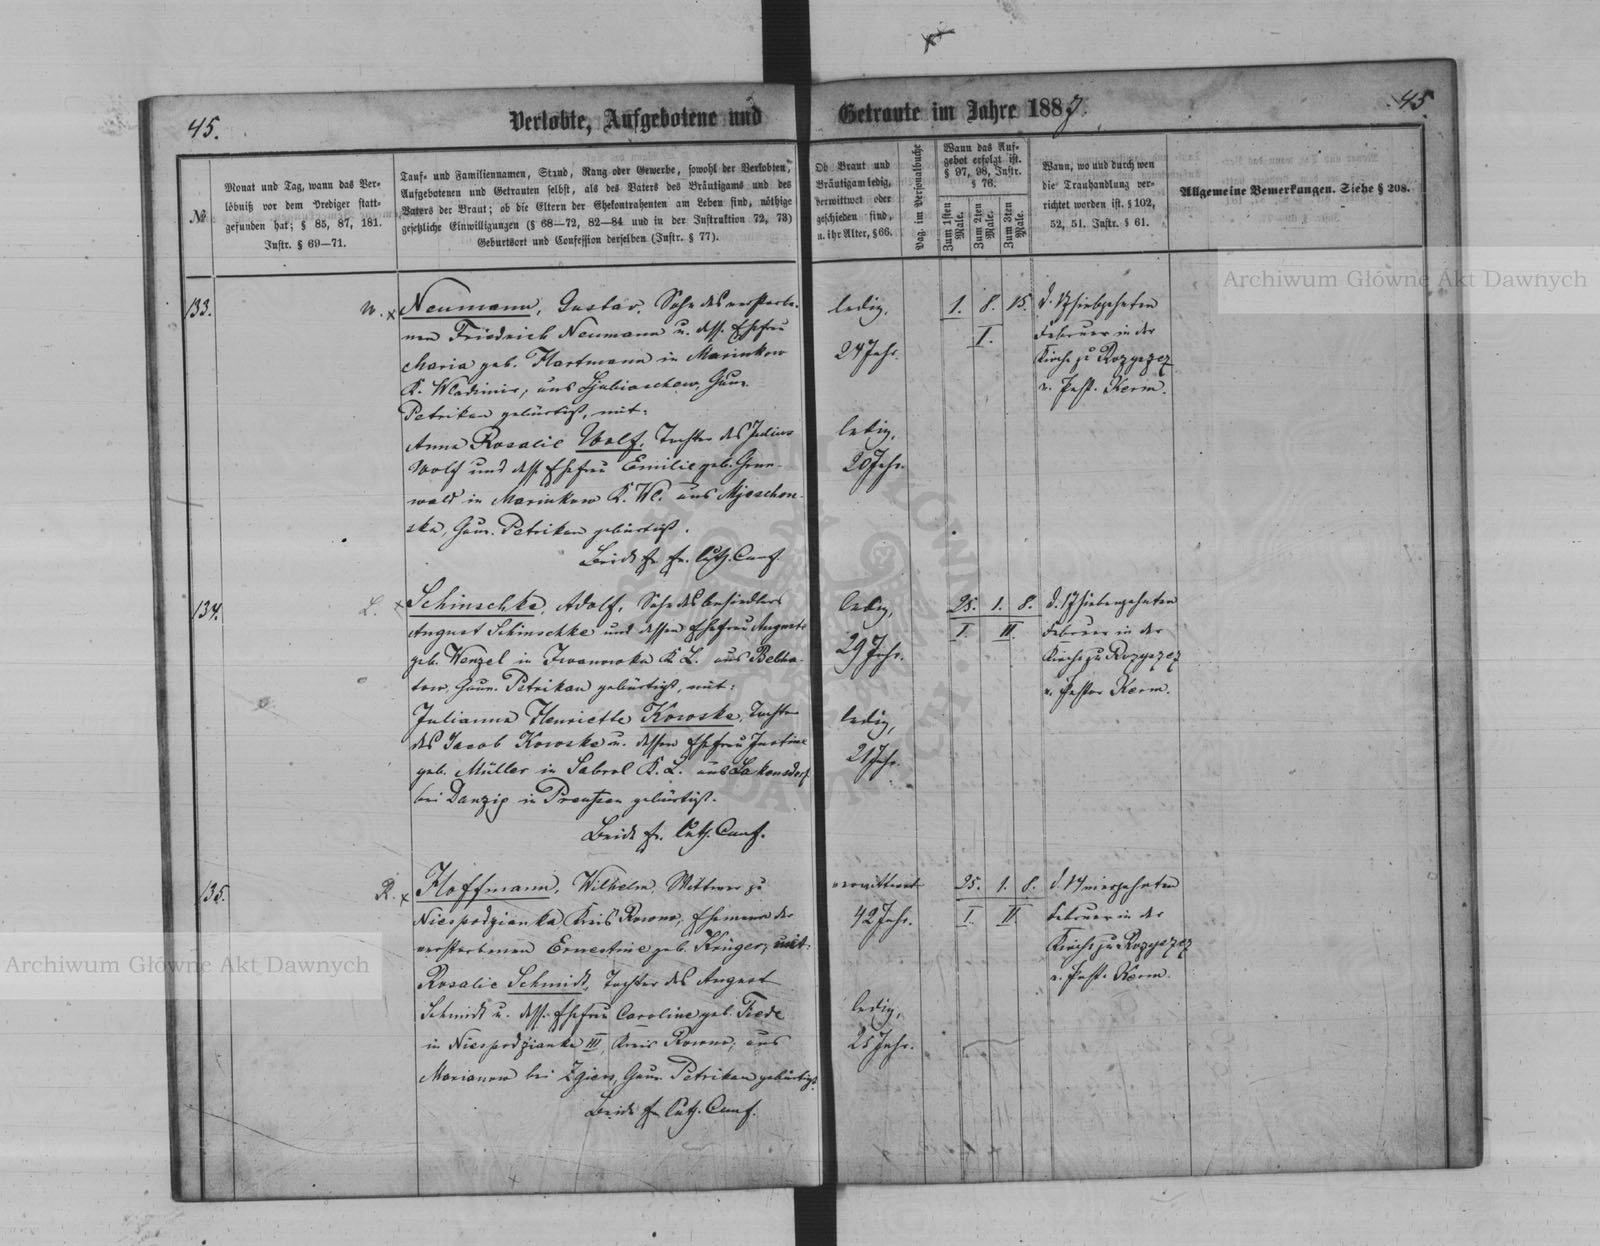 45.
Verlobte, Aufgebotene und
Getraute im Jahre 1887.
45.
№
Monat und Tag, wann das Ver-
löbniß vor dem Prediger statt-
gefunden hat; § 85, 87, 181.
Instr. § 69—71.
Tauf- und Familiennamen, Stand, Rang oder Gewerbe, sowohl der Verlobten,
Aufgebotenen und Getrauten selbst, als des Vaters des Bräutigams und des
Vaters der Braut; ob die Eltern der Ehekontrahenten am Leben sind, nöthige
gesetzliche Einwilligungen (§ 68—72, 82—84 und in der Instruktion 72, 73)
Geburtsort und Confession derselben (Instr. § 77).
Ob Braut und
Bräutigam ledig,
verwittwet oder
geschieden sind,
u. ihr Alter, § 66.
Pag. im Personalbuche
Wann das Auf-
gebot erfolgt ist.
§ 97, 98, Instr.
§ 76.
Zum 1sten Male.
Zum 2ten Male.
Zum 3ten Male.
Wann, wo und durch wen
die Trauhandlung ver-
richtet worden ist. § 102,
52, 51. Instr. § 61.
Allgemeine Bemerkungen. Siehe § 208.
133.
Neumann, Gustav, Sohn des verstorbe-
nen Friedrich Neumann u. dess. Ehefrau
Maria geb. Hartmann in Marinkow
K. Wladimir, aus Gouv.
Petrikau gebürtigt, mit:
Anna Rosalie Wolf, Tochter des Julius
Wolf und dess. Ehefrau Emilie geb. Grun-
wald in Marinkow K. Wl. aus
Gouv. Petrikau gebürtigt.
Beide luth. Conf.
ledig,
24 Jahr.
ledig,
20 Jahr.
1. 8. 15.
I.
d. 17 siebzehnten
Februar in der
Kirche zu Rozyszcz
v. Past. Kerm.
134.
L. x
Schinschke, Adolf, Sohn des Ansiedlers
August Schinschke und dessen Ehefrau Auguste
geb. Wenzel in Iwanowka K. L. aus Belcha-
tow, Gouv. Petrikau gebürtigt, mit:
Julianna Henriette Kowske, Tochter
des Jacob Kowske u. dessen Ehefrau Justine
geb. Müller in Sabrol K. L. aus
bei Danzig in Preußen gebürtigt.
Beide luth. Conf.
ledig,
29 Jahr.
ledig,
21 Jahr.
25. 1. 8.
I. II.
d. 17 siebenzehnten
Februar in der
Kirche zu Rozyszcz
v. Pastor Kerm.
135.
R. x
Hoffmann, Wilhelm, Wittwer zu
Niespodzianka Kreis Rowno, Ehemann der
verstorbenen Ernestine geb. Krüger, mit:
Rosalie Schmidt, Tochter des August
Schmidt u. dess. Ehefrau Caroline geb. Tiede
in Niespodzianka III, Kreis Rowno, aus
Marianow bei Zgierz, Gouv. Petrikau gebürtigt.
Beide luth. Conf.
verwittwet
42 Jahr.
ledig,
25 Jahr.
25. 1. 8.
I. II.
d. 14 vierzehnten
Februar in der
Kirche zu Rozyszcz
v. Past. Kerm.
Archiwum Główne Akt Dawnych
Archiwum Główne Akt Dawnych